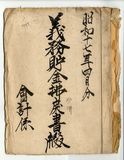 昭和十七年四月分
義務貯金排戻書綴
会計係